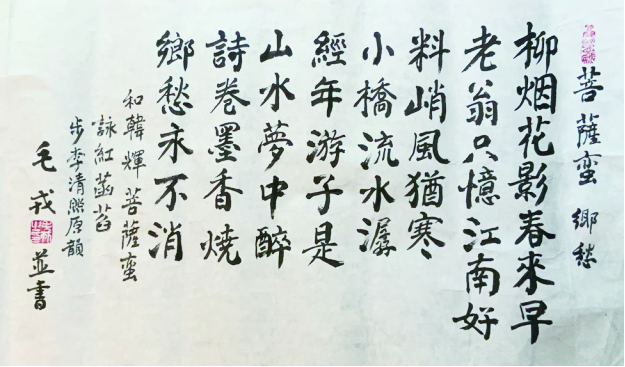 菩薩蛮 鄉愁
柳烟花影春來早
老翁只憶江南好
料峭風猶寒
小橋流水潺
經年游子是
山水夢中醉
詩卷墨香燒
鄉愁永不消
和韓輝菩薩蛮
詠紅菡萏
步李清照原韻
毛戎 並書